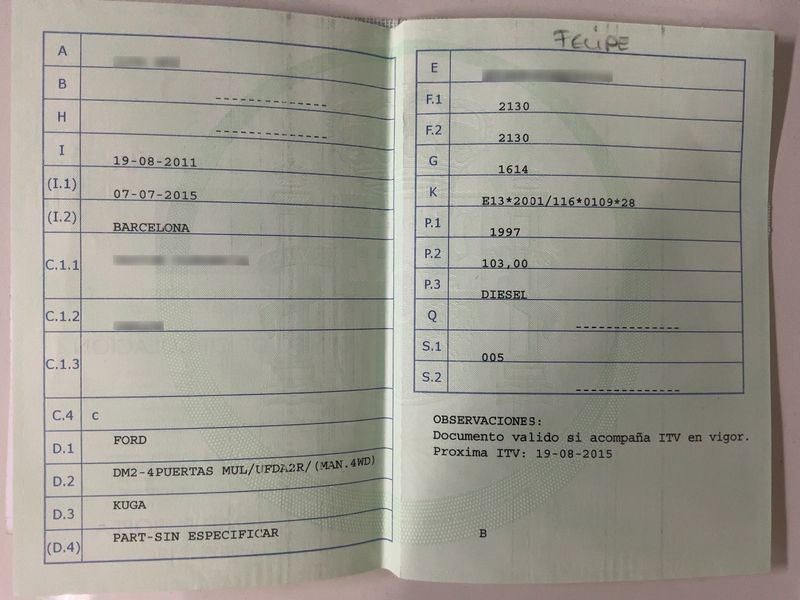 A
B
H
I 19-08-2011
(I.1) 07-07-2015
(I.2) BARCELONA
C.1.1
C.1.2
C.1.3
C.4 c
D.1 FORD
D.2 DM2-4PUERTAS MUL/UFDA2R/(MAN.4WD)
D.3 KUGA
(D.4) PART-SIN ESPECIFICAR
FELIPE
E
F.1 2130
F.2 2130
G 1614
K E13*2001/116*0109*28
P.1 1997
P.2 103,00
P.3 DIESEL
Q
S.1 005
S.2
OBSERVACIONES:
Documento valido si acompaña ITV en vigor.
Proxima ITV: 19-08-2015
B